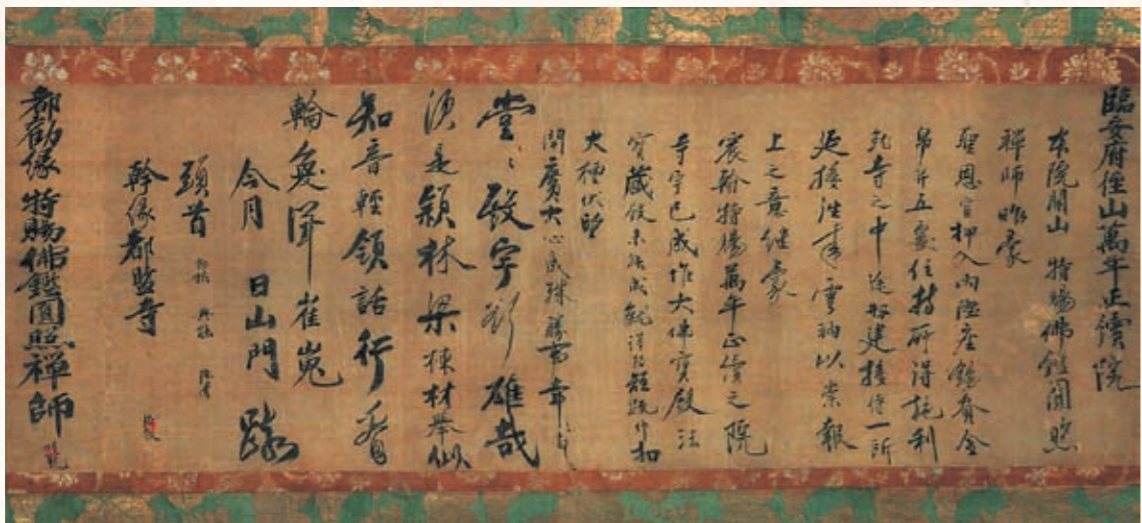 臨安府徑山萬年正續院
本院開山 特賜佛鑑圓照
禪師昨蒙
聖恩宣押入內陞座錫賚金
帛并五處住持所得施利
於寺之中途建接待一所
延接往來雲衲以崇報
上之意繼蒙
宸翰特賜萬年正續之院
寺宇已成惟大佛寶殿法
寶藏殿未能成就謹持短疏仰扣
大檀伏望
開廣大心成殊勝事幸
堂〻殿宇雄哉
須是穎林梁棟材舉似
知音輕領話行看
輪奐聳崔嵬
今月 日山門 疏
頭首
幹緣都監寺
都勸緣特賜佛鑑圓照禪師